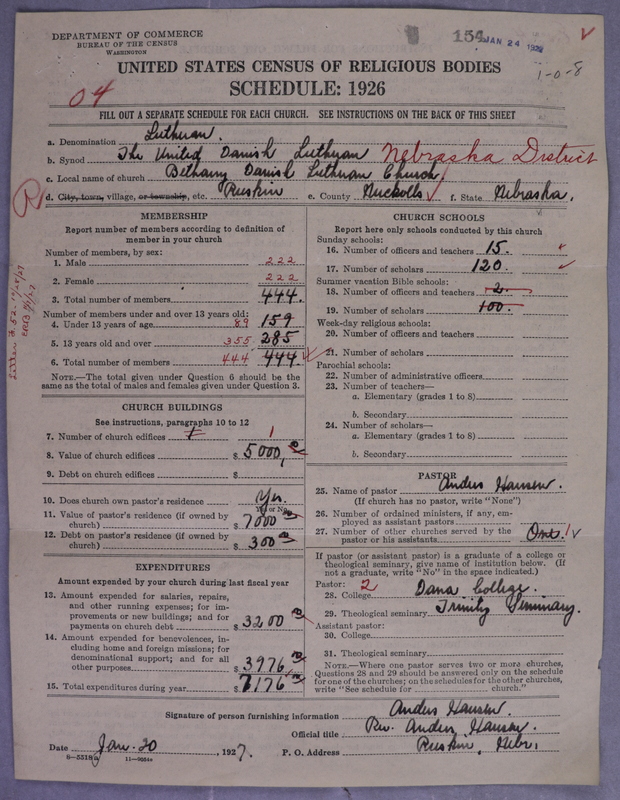 DEPARTMENT OF COMMERCE
BUREAU OF THE CENSUS
WASHINGTON
154 JAN 24
1-0-8
UNITED STATES CENSUS OF RELIGIOUS BODIES
SCHEDULE: 1926
04
FILL OUT A SEPARATE SCHEDULE FOR EACH CHURCH. SEE INSTRUCTIONS ON THE BACK OF THIS SHEET
a. Denomination Lutheran.
b. Synod The United Danish Lutheran Nebraska District
c. Local name of church Bethany Danish Lutheran Church
R d. City, town, village, or township, etc. Ruskin e. County Nuckolls f. State Nebraska.
MEMBERSHIP
Report number of members according to definition of
member in your church
Number of members, by sex:
1. Male 222
2. Female 222
3. Total number of members 444.
Number of members under and over 13 years old:
4. Under 13 years of age 89 159
5. 13 years old and over 355 285
6. Total number of members 444 444.
NOTE.—The total given under Question 6 should be
the same as the total of males and females given under Question 3.
CHURCH BUILDINGS
See instructions, paragraphs 10 to 12
7. Number of church edifices 1
8. Value of church edifices $ 5000,
9. Debt on church edifices $
10. Does church own pastor's residence Yes.
Yes or No
11. Value of pastor's residence (if owned by
church) $ 7000
12. Debt on pastor's residence (if owned by
church) $ 300
EXPENDITURES
Amount expended by your church during last fiscal year
13. Amount expended for salaries, repairs,
and other running expenses; for im-
provements or new buildings; and for
payments on church debt $ 3200
14. Amount expended for benevolences, in-
cluding home and foreign missions; for
denominational support; and for all
other purposes $ 3976
15. Total expenditures during year $ 7176
CHURCH SCHOOLS
Report here only schools conducted by this church
Sunday schools:
16. Number of officers and teachers 15.
17. Number of scholars 120.
Summer vacation Bible schools:
18. Number of officers and teachers 2.
19. Number of scholars 100.
Week-day religious schools:
20. Number of officers and teachers
21. Number of scholars
Parochial schools:
22. Number of administrative officers
23. Number of teachers—
a. Elementary (grades 1 to 8)
b. Secondary
24. Number of scholars—
a. Elementary (grades 1 to 8)
b. Secondary
PASTOR
25. Name of pastor Anders Hansen.
(If church has no pastor, write "None")
26. Number of ordained ministers, if any, em-
ployed as assistant pastors
27. Number of other churches served by the
pastor or his assistants One. 1
If pastor (or assistant pastor) is a graduate of a college or
theological seminary, give name of institution below. (If
not a graduate, write "No" in the space indicated.)
Pastor: 2
28. College Dana College.
29. Theological seminary Trinity Seminary.
Assistant pastor:
30. College
31. Theological seminary
NOTE.—Where one pastor serves two or more churches,
Questions 28 and 29 should be answered only on the schedule
for one of the churches; on the schedules for the other churches,
write "See schedule for church."
Signature of person furnishing information Anders Hansen.
Official title Rev. Anders Hansen.
Date Jan. 20, 1927. P. O. Address Ruskin, Nebr.